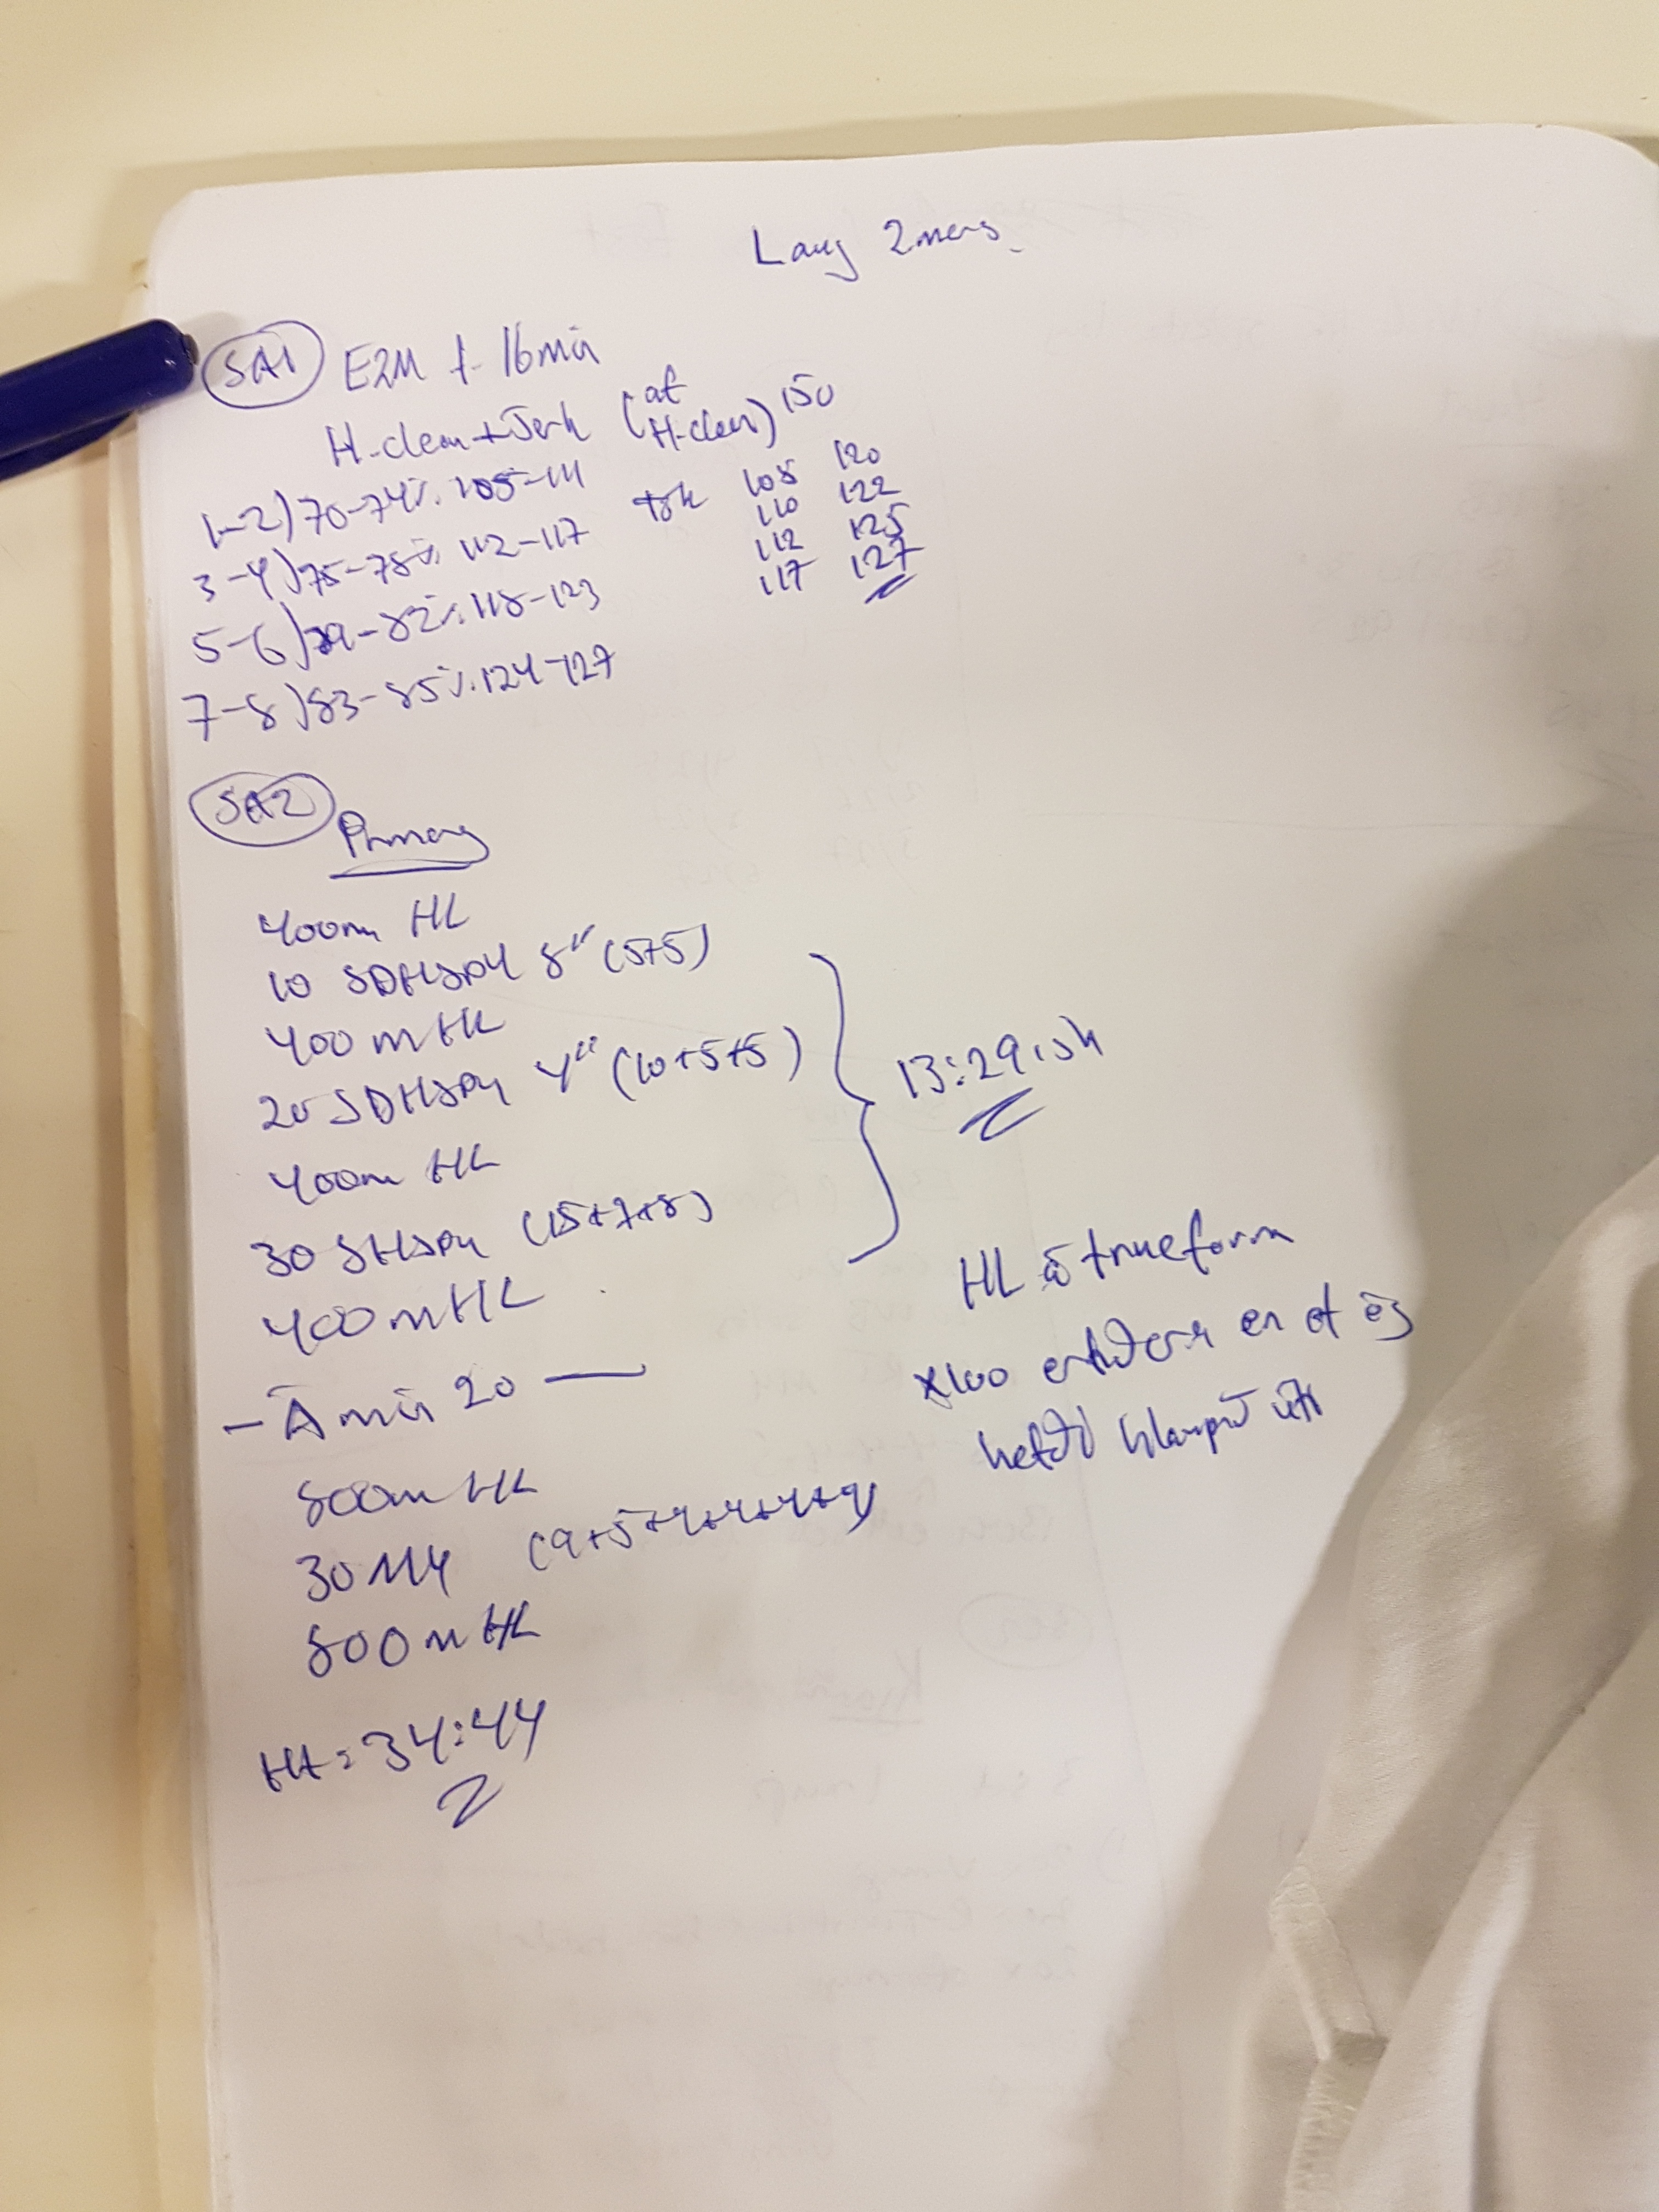 Laug 2mars
SA1 E2M í 16mín
H-clean + Jerk (af H-clean) 150
1-2) 70-74% 105-111
3-4) 75-78% 112-117
5-6) 79-82% 118-123
7-8) 83-85% 124-127
tók 108 120
110 122
112 125
117 127
SA2
400m HL
10 SDHSPU 8" (5+5)
400m HL
20 SDHSPU 4" (10+5+5)
400m HL
30 SHSPU (15+7+8)
400m HL
13:29ish
- Á mín 20 —
800m HL
30 MU (9+5+4+4+4+4)
800m HL
= 34:44
HL á trueform
en ef ég
hefði hlaupið úti